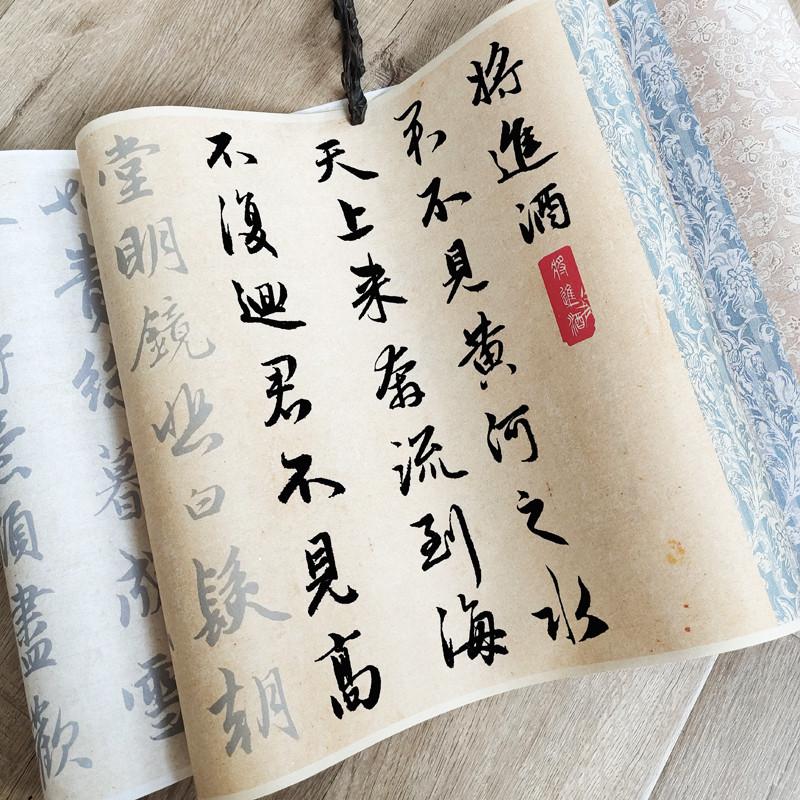 将進酒
将進酒
君不見黄河之水
天上来奔流到海
不復迴君不見高
堂明鏡悲白髮朝
如青絲暮成雪
得意須盡歡